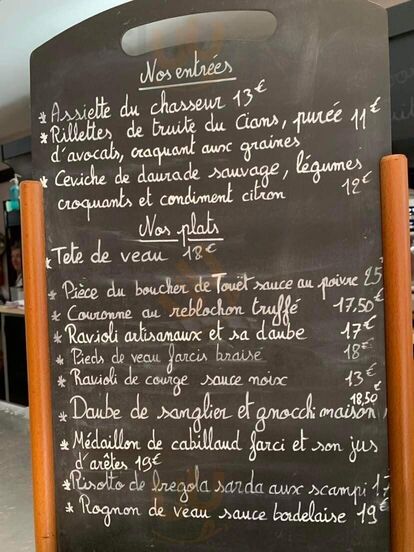 Nos entrées
* Assiette du chasseur 13€
* Rillettes de truite du Cians, purée 11€
d'avocats, craquant aux graines
* Ceviche de daurade sauvage, légumes
croquants et condiment citron 12€
Nos plats
* Tete de veau 18€
* Pièce du boucher de Touët sauce au poivre 25
* Couronne au reblochon truffé 17,50€
* Ravioli artisanaux et sa daube 17€
* Pieds de veau farcis braisé 18€
* Ravioli de courge sauce noix 13€
* Daube de sanglier et gnocchi maison 18,50€
* Médaillon de cabillaud farci et son jus
d'arêtes 19€
* Risotto de fregola sarda aux scampi 17
* Rognon de veau sauce bordelaise 19€